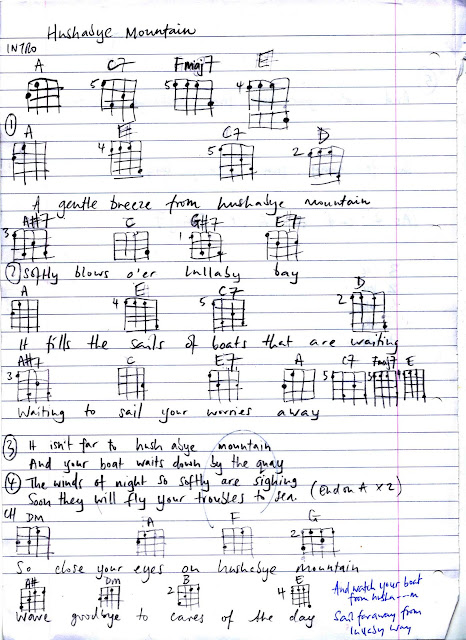 Hushabye Mountain
INTRO
A C7 Fmaj7 E
5 5 4
① A E C7 D
4 5 2
A gentle breeze from hushabye mountain
A#7 C G#7 E7
3 1
② Softly blows o'er lullaby bay
A E C7 D
4 5 2
It fills the sails of boats that are waiting
A#7 C E7 A C7 Fmaj7 E
3 5 5
Waiting to sail your worries away
③ It isn't far to hushabye mountain
And your boat waits down by the quay
④ The winds of night so softly are sighing
Soon they will fly your troubles to sea. (End on A x 2)
CH Dm A F G
2
So close your eyes on hushabye mountain
A# Dm B E
2 4
Wave goodbye to cares of the day
And watch your boat
from husha---m
Sail far away from
lullaby bay